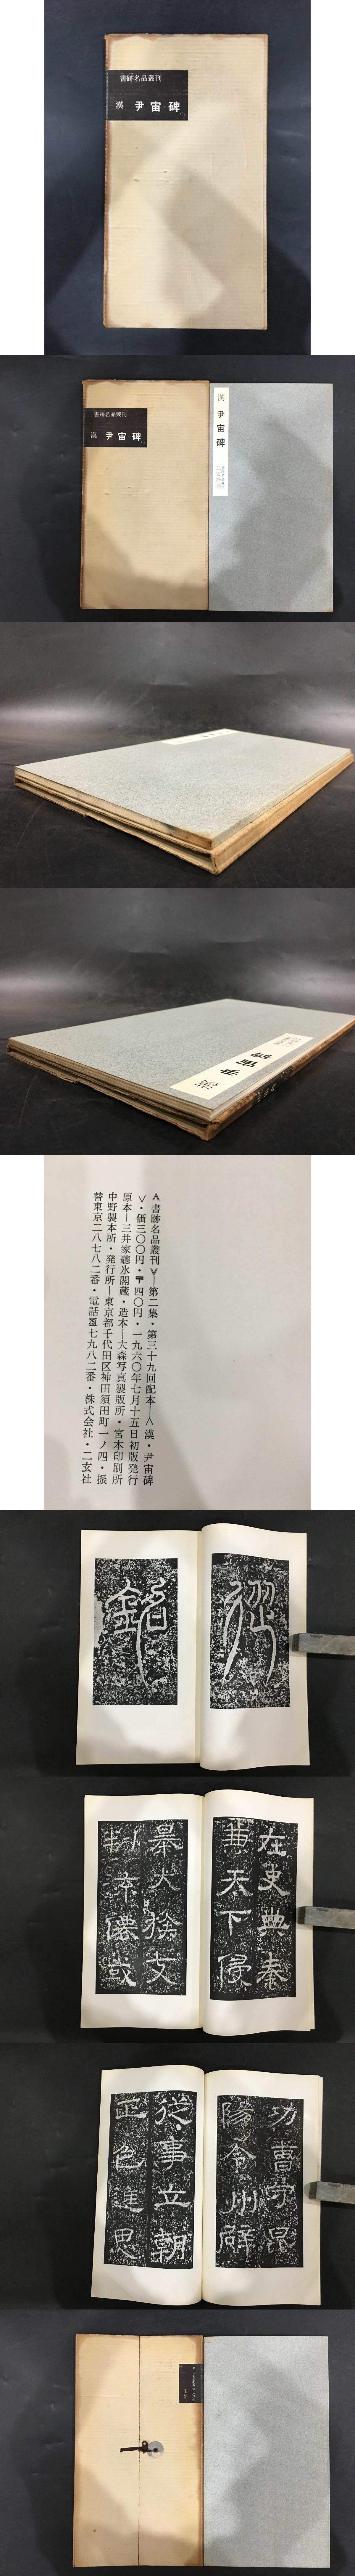 書跡名品叢刊
漢 尹宙碑
書跡名品叢刊
漢 尹宙碑
漢 尹宙碑
漢 尹宙碑
<書跡名品叢刊>―第二集・第三十九回配本―<漢・尹宙碑
>・価三〇〇円・〒四〇円・一九六〇年七月十五日初版発行
原本―三井家聴氷閣蔵・造本―大森写真製版所・宮本印刷所
中野製本所・発行所―東京都千代田区神田須田町一ノ四・振
替東京二八七八二番・電話㉕七九八二番・株式会社・二玄社
從
銘
在史典秦
兼天下侵
暴大族支
判流僊或
功曹守昆
陽令州辟
從事立朝
正色進思